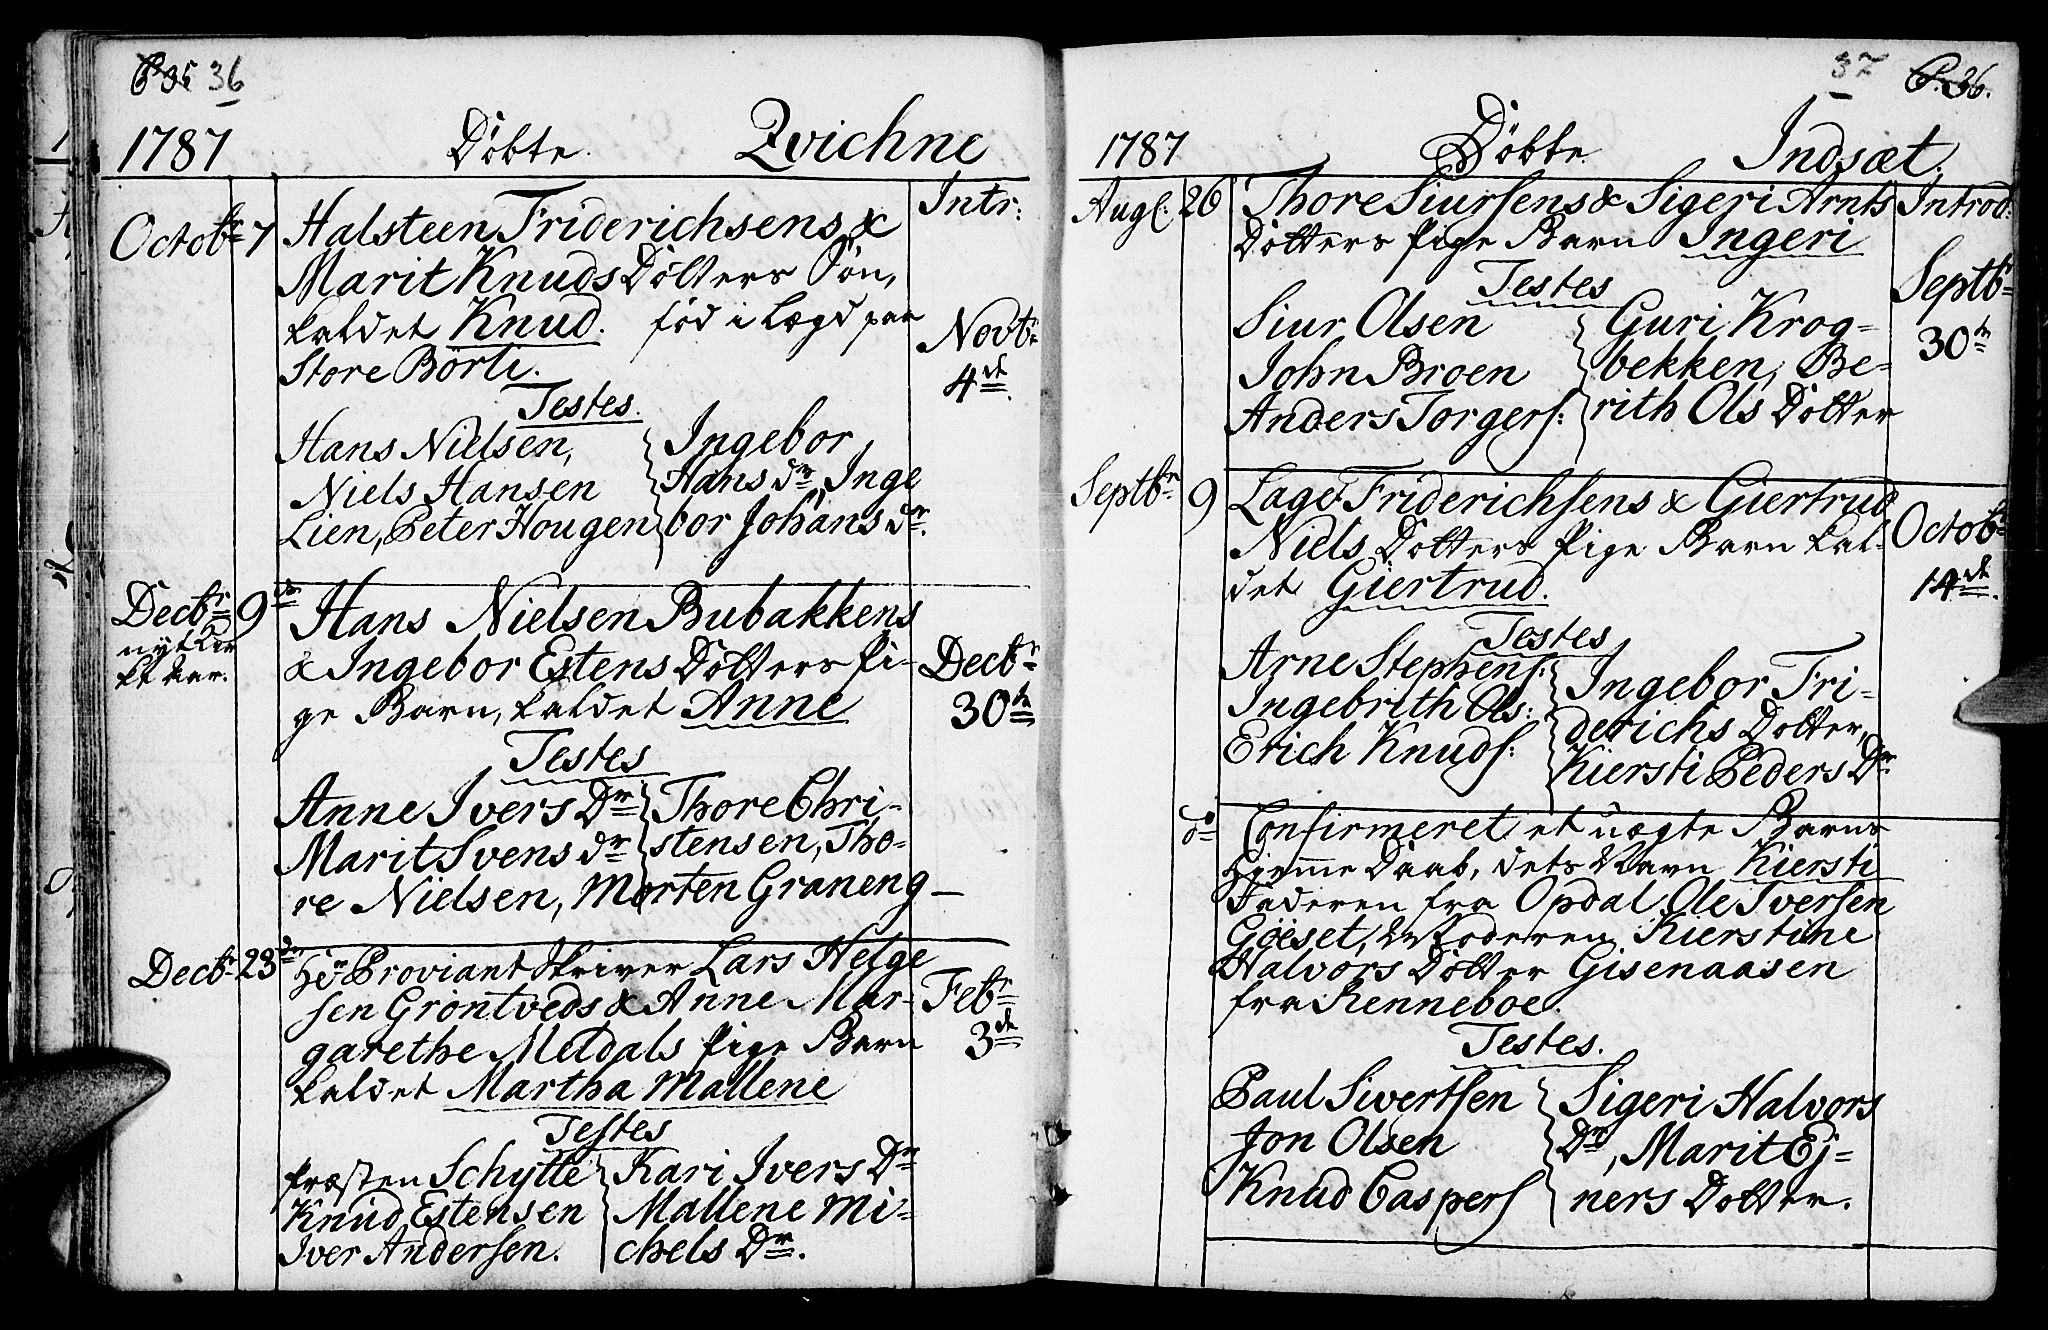 P. 35 36
1787 Döbte. Qvichne
Octobr 7 Halsteen Friderichsens &
Intr:
Marit Knuds Dötters Sön,
kaldet Knud. föd i Lægd paa
Store Börli.
Novbr
4de
Testes.
Hans Nielsen,
Niels Hansen
Lien, Peter Hougen
Ingebor
Hans dr, Inge
bor Johans dr.
Decbr 9de Hans Nielsen Bubakkens
nyt Kir
ke Aar.
& Ingebor Estens Dötters Pi-
ge Barn, kaldet Anne
Decbr
30te
Testes
Anne Ivers Dr
Marit Svens dr
Thore Chri-
stensen, Tho-
re Nielsen, Morten Graneng
Decbr 23de Hr Proviant Skriver Lars Helge
sen Gröntveds & Anne Mar-
garethe Meldals Pige Barn
kaldet Martha Mallene
Febr
3de
Testes
Præsten Schytte
Knud Estensen
Iver Andersen.
Kari Ivers Dr
Mallene Mi-
chels Dr.
37 P. 36.
1787 Döbte Indsæt,
Aug: 26 Thore Siursens & Sigeri Arnts
Dotters Pige Barn Ingeri
Introd:
Septbr
30te
Testes
Siur Olsen
John Broen
Anders Torgers:
Guri Krog-
bekken, Be-
rith Ols Dotter
Septbr 9 Lage Friderichsens & Giertrud
Niels Dotters Pige Barn kal-
det Giertrud.
Octobr
14de.
Testes
Arne Stephens:
Ingebrith Ols:
Erich Knuds:
Ingebor Fri-
derichs Dotter,
Kiersti Peders Dr
do Confirmeret et uægte Barns
Hjemme Daab, dets Navn Kiersti
Faderen fra Opdal Ole Iversen
Göeset, Moderen Kierstine
Halvors Dötter Gisenaasen
fra Renneboe.
Testes.
Paul Sivertsen
Jon Olsen
Knud Caspers
Sigeri Halvors
Dr, Marit Ej-
ners Dotter.